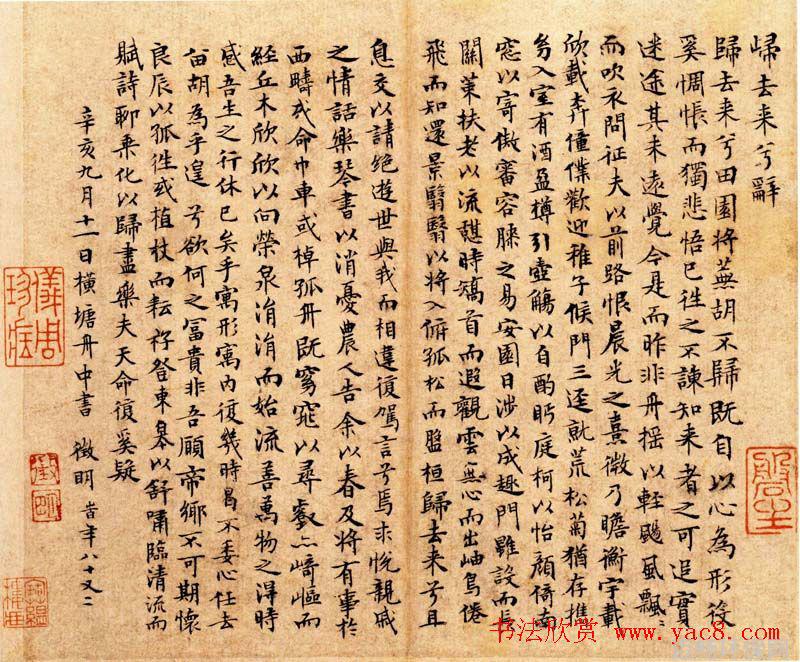 歸去来兮辭
歸去来兮田園將蕪胡不歸既自以心為形役
奚惆悵而獨悲悟已往之不諫知来者之可追實
迷途其未遠覺今是而昨非舟摇以輕颺風飄〻
而吹衣問征夫以前路恨晨光之熹微乃瞻衡宇載
欣載奔僮僕歡迎稚子候門三逕就荒松菊猶存攜
幼入室有酒盈樽引壺觴以自酌眄庭柯以怡顏倚南
窓以寄傲審容膝之易安園日涉以成趣門雖設而長
關策扶老以流憩時矯首而遐觀雲無心而出岫鳥倦
飛而知還景翳翳以將入俯孤松而盤桓歸去来兮且
息交以請絶遊世與我而相違復駕言兮焉求悅親戚
之情話樂琴書以消憂農人告余以春及將有事於
西疇或命巾車或棹孤舟既窈窕以尋壑亦崎嶇而
經丘木欣欣以向榮泉涓涓而始流善萬物之得時
感吾生之行休已矣乎寓形寓內復幾時曷不委心任去
留胡為乎遑兮欲何之富貴非吾願帝鄉不可期懷
良辰以孤往或植杖而耘耔登東皋以舒嘯臨清流而
賦詩聊乘化以歸盡樂夫天命復奚疑
辛亥九月十一日橫塘舟中書 徵明 時年八十又二
磬室
儀周珍藏
徵明
书法欣赏 www.yac8.com